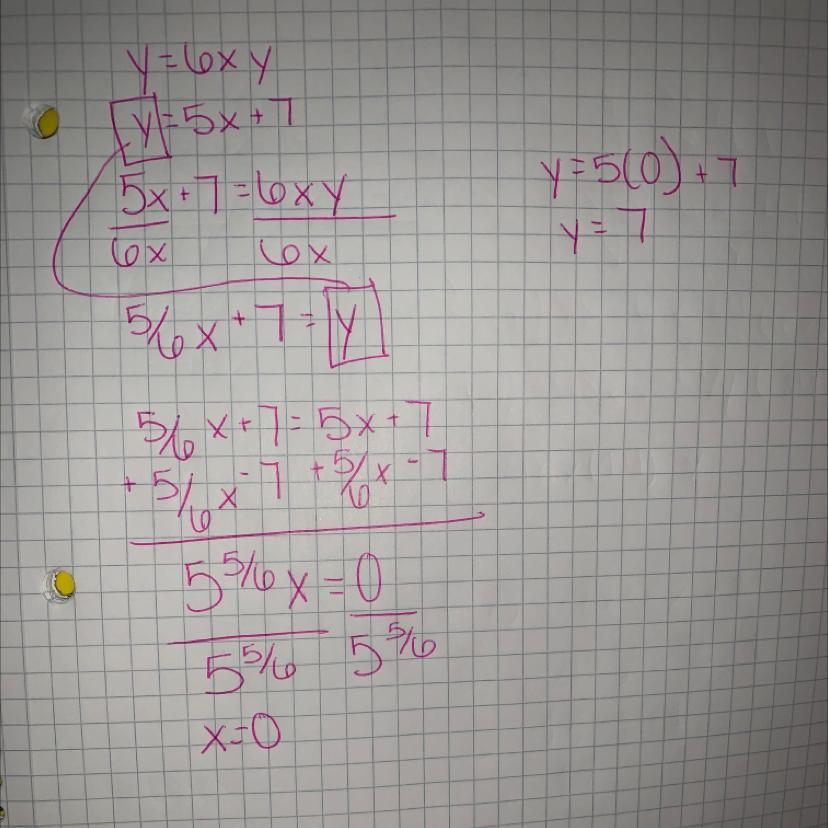 y=6xy
y=5x+7
5x+7=6xy
6x 6x
5/6x+7=y
5/6x+7=5x+7
+5/6x-7 +5/6x-7
5 5/6x=0
5 5/6 5 5/6
x=0
y=5(0)+7
y=7